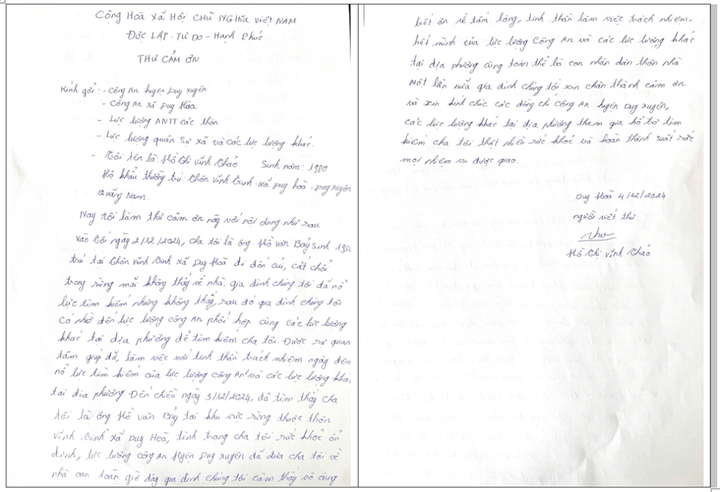 Cộng Hoà Xã Hội Chủ Nghĩa Việt NAM
Độc LẬP - Tự Do - Hạnh Phúc
THƯ CẢM ƠN
Kính gởi: - Công An huyện Duy Xuyên
- Công An xã Duy Hoà
- Lực lượng ANTT các thôn
- Lực lượng quân Sự xã và các lực lượng khác.
- Tôi tên là Hồ Thị Vĩnh Thảo Sinh năm: 1980
Hộ khẩu thường trú thôn Vĩnh Trinh xã Duy Hoà - Duy Xuyên
Quảng Nam.
Nay tôi làm thư cảm ơn này với nội dung như sau
Vào tối ngày 2/12/2024, cha tôi là ông Hồ Văn Bảy sinh
trú tại thôn Vĩnh Trinh xã Duy Hoà đi đốn củi, cắt chổi
trong rừng mãi không thấy về nhà. gia đình chúng tôi đã nổ
lực tìm kiếm nhưng không thấy, sau đó gia đình chúng tôi
có nhờ đến lực lượng công An phối hợp cùng các lực lượng
khác tại địa phương để tìm kiếm cha tôi. Được sự quan
tâm giúp đỡ, làm việc với tinh thần trách nhiệm ngày đêm
nổ lực tìm kiếm của lực lượng công An và các lực lượng khác
tại địa phương Đến chiều ngày 3/12/2024, đã tìm thấy cha
tôi là ông Hồ Văn Bảy tại khu vực rừng thuộc thôn
Vĩnh Trinh xã Duy Hoà, tình trạng cha tôi sức khoẻ ổn
định, lực lượng công An Huyện Duy Xuyên đã đưa cha tôi về
nhà an toàn giờ đây gia đình chúng tôi cảm thấy vô cùng
biết ơn về tấm lòng, tinh thần làm việc trách nhiệm.
hết mình của lực lượng Công An và các lực lượng khác
tại địa phương cùng toàn thể bà con nhân dân thôn nhà
Một lần nữa gia đình chúng tôi xin chân thành cảm ơn
và xin kính chúc các đồng chí công An huyện Duy Xuyên,
các lực lượng khác tại địa phương tham gia hỗ trợ tìm
kiếm cha tôi thật nhiều sức khoẻ và hoàn thành xuất sắc
mọi nhiệm vụ được giao.
Duy Hoà 4/12/2024
người viết thư
Hồ Thị Vĩnh Thảo